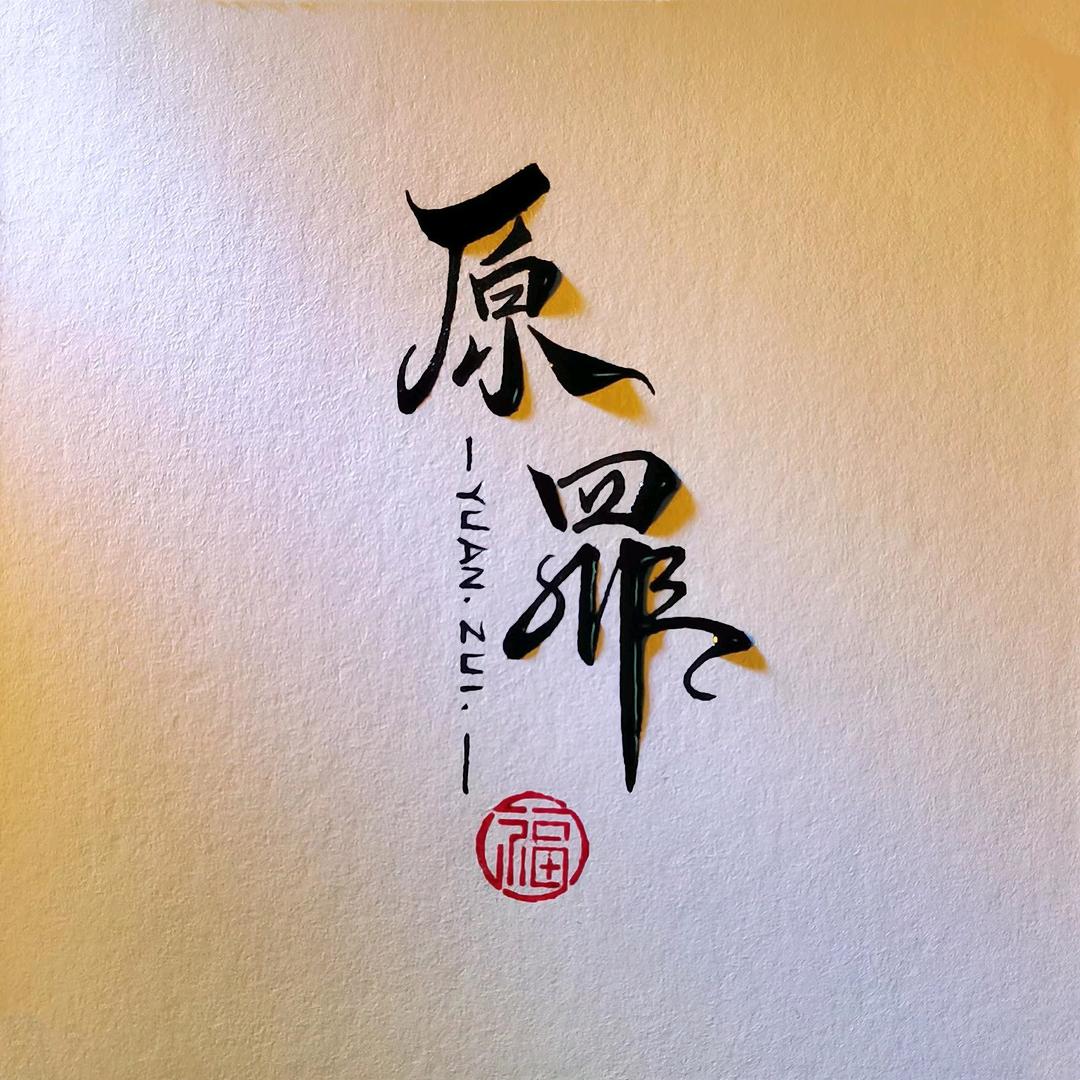 原罪
—YUAN. ZUI.—
福